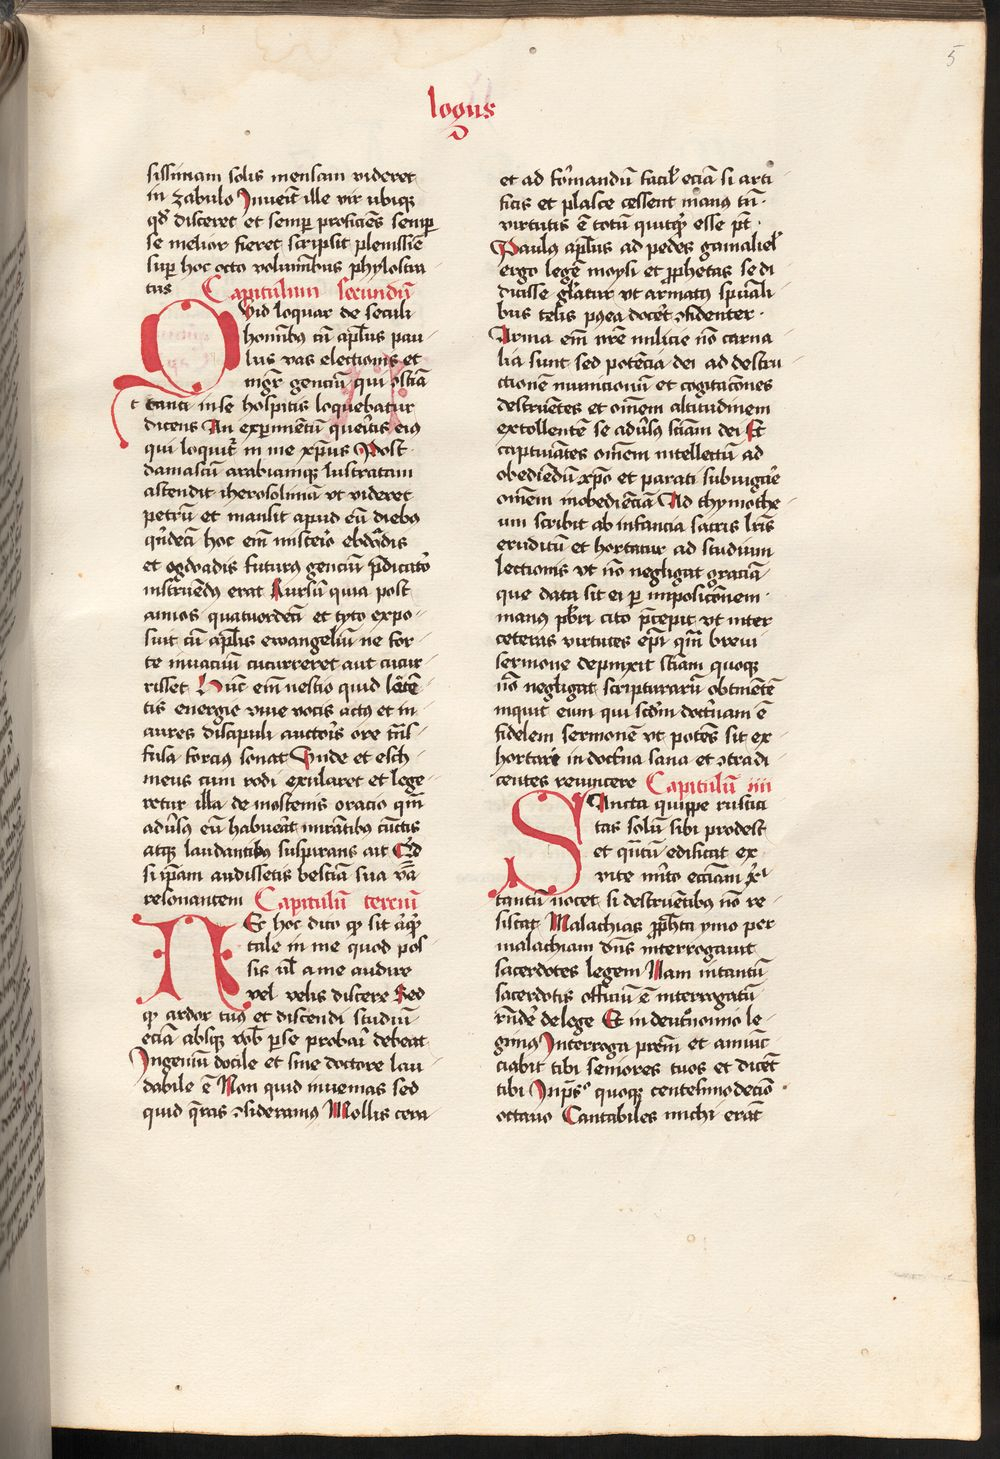 5
logus
sissimam solis mensam videret
in zabulo Inueit̄ ille vir ubiqꝫ
qd̓ disceret et semꝑ proficiēs semꝑ
se melior fieret scripsit plenissīe
suꝑ hoc octo volumībus phylostra
tus Capitulum secundū
Quid loquar de seculi
homībꝫ cū apl̄us pau
lus vas electionis et
mgr̄ genciū qui ꝯsciā
tanti inse hospitis loquebatur
dicens An exꝑimentū queritis eius
qui loquit᷑ in me xp̄us Post
damascū arabiamqꝫ lustratam
ascendit iherosolimā vt videret
petrū et mansit apud eū diebꝫ
qn̄decī hoc em̄ misterio ebdōadis
et ogdoadis futurꝰ genciū p̄dicator
instruēdꝰ erat Rursū quia post
annos quatuordecī et tyto expo
suit cū apl̄is ewangeliū ne for
te inuacuū cucurreret aut cucur
risset Hūc em̄ nescio quid latētē
tis energie viue vocis actꝰ et in
aures discipuli auctoris ore trās
fusa forciꝰ sonat Unde et esch
ineus cum rodi exularet et lege
retur illa de mostenis oracio qm̄
aduʼsꝰ eū habuerat mirātibꝫ cūctis
atqꝫ laudantibꝫ suspirans ait Qid
si ip̄am audissetis bestiā sua v̄ba
resonantem Capitulū terciū
Nec hoc dico ꝙ sit aliqͥd
tale in me quod pos
sis ul̓ a me audire
vel velis discere Sed
ꝙ ardor tuꝰ et discendi studiū
eciā absqꝫ nob̄ ꝑse probari debeat
Ingeniū docile et sine doctore lau
dabile ē Non quid inuenias sed
quid q̄ras ꝯsideramꝰ Mollis cera
et ad formandū facil̓ eciā si arti
ficis et plasce cessent manꝰ tn̄
virtutis ē totū quitqͥd esse pt̄
Paulꝰ apl̄us ad pedes gamaliel̓
ergo legē moysi et ꝓphetas se di
dicisse gl̓atur vt armatꝰ spūali
bus telis pꝰea docer̓ ꝯfidenter
Arma em̄ nr̄e milicie nō carna
lia sunt sed potēcia dei ad destru
ctionē municionū et cogitacōnes
destruētes et om̄em altitudinem
extollentē se aduʼsꝰ sciām dei Et
captiuātes om̄em intellectū ad
obediēdū xp̄o et parati subiugar̓e
om̄em inobediēciā Ad thymothe
um scribit ab infancia sacris lr̄is
eruditū et hortatur ad studium
lectionis vt nō negligat graciā
que data sit ei ꝑ imposicōnem
manꝰ pbr̄i Cito p̄cepit vt inter
ceteras virtutes ep̄i qm̄ breui
sermone depinxit sciām quoqꝫ
nō negligat scripturarū obtinētē
inquit eum qui scd̄m doctrinam ē
fidelem sermonē vt potēs sit ex
hortari in doctrīa sana et ꝯtradi
centes reuincere Capitulū iiii
Sancta quippe rustici
tas solū sibi prodest
et qn̄tū edificat ex
vite mīto ecciām xͥ
tantū nocet si destruētibꝫ nō re
sistat Malachias ꝓph̄ta ymo per
malachiam dn̄s interrogauit
sacerdotes legem Nam intantū
sacerdotis officiū ē interrogatū
rn̄der̓ de lege Et in deut̓onomio le
gimꝰ Interroga prēm et annūc
ciabit tibi seniores tuos et dicēt
tibi In ps̄o quoqꝫ centesimodecīo
octauo Cantabiles michi erāt